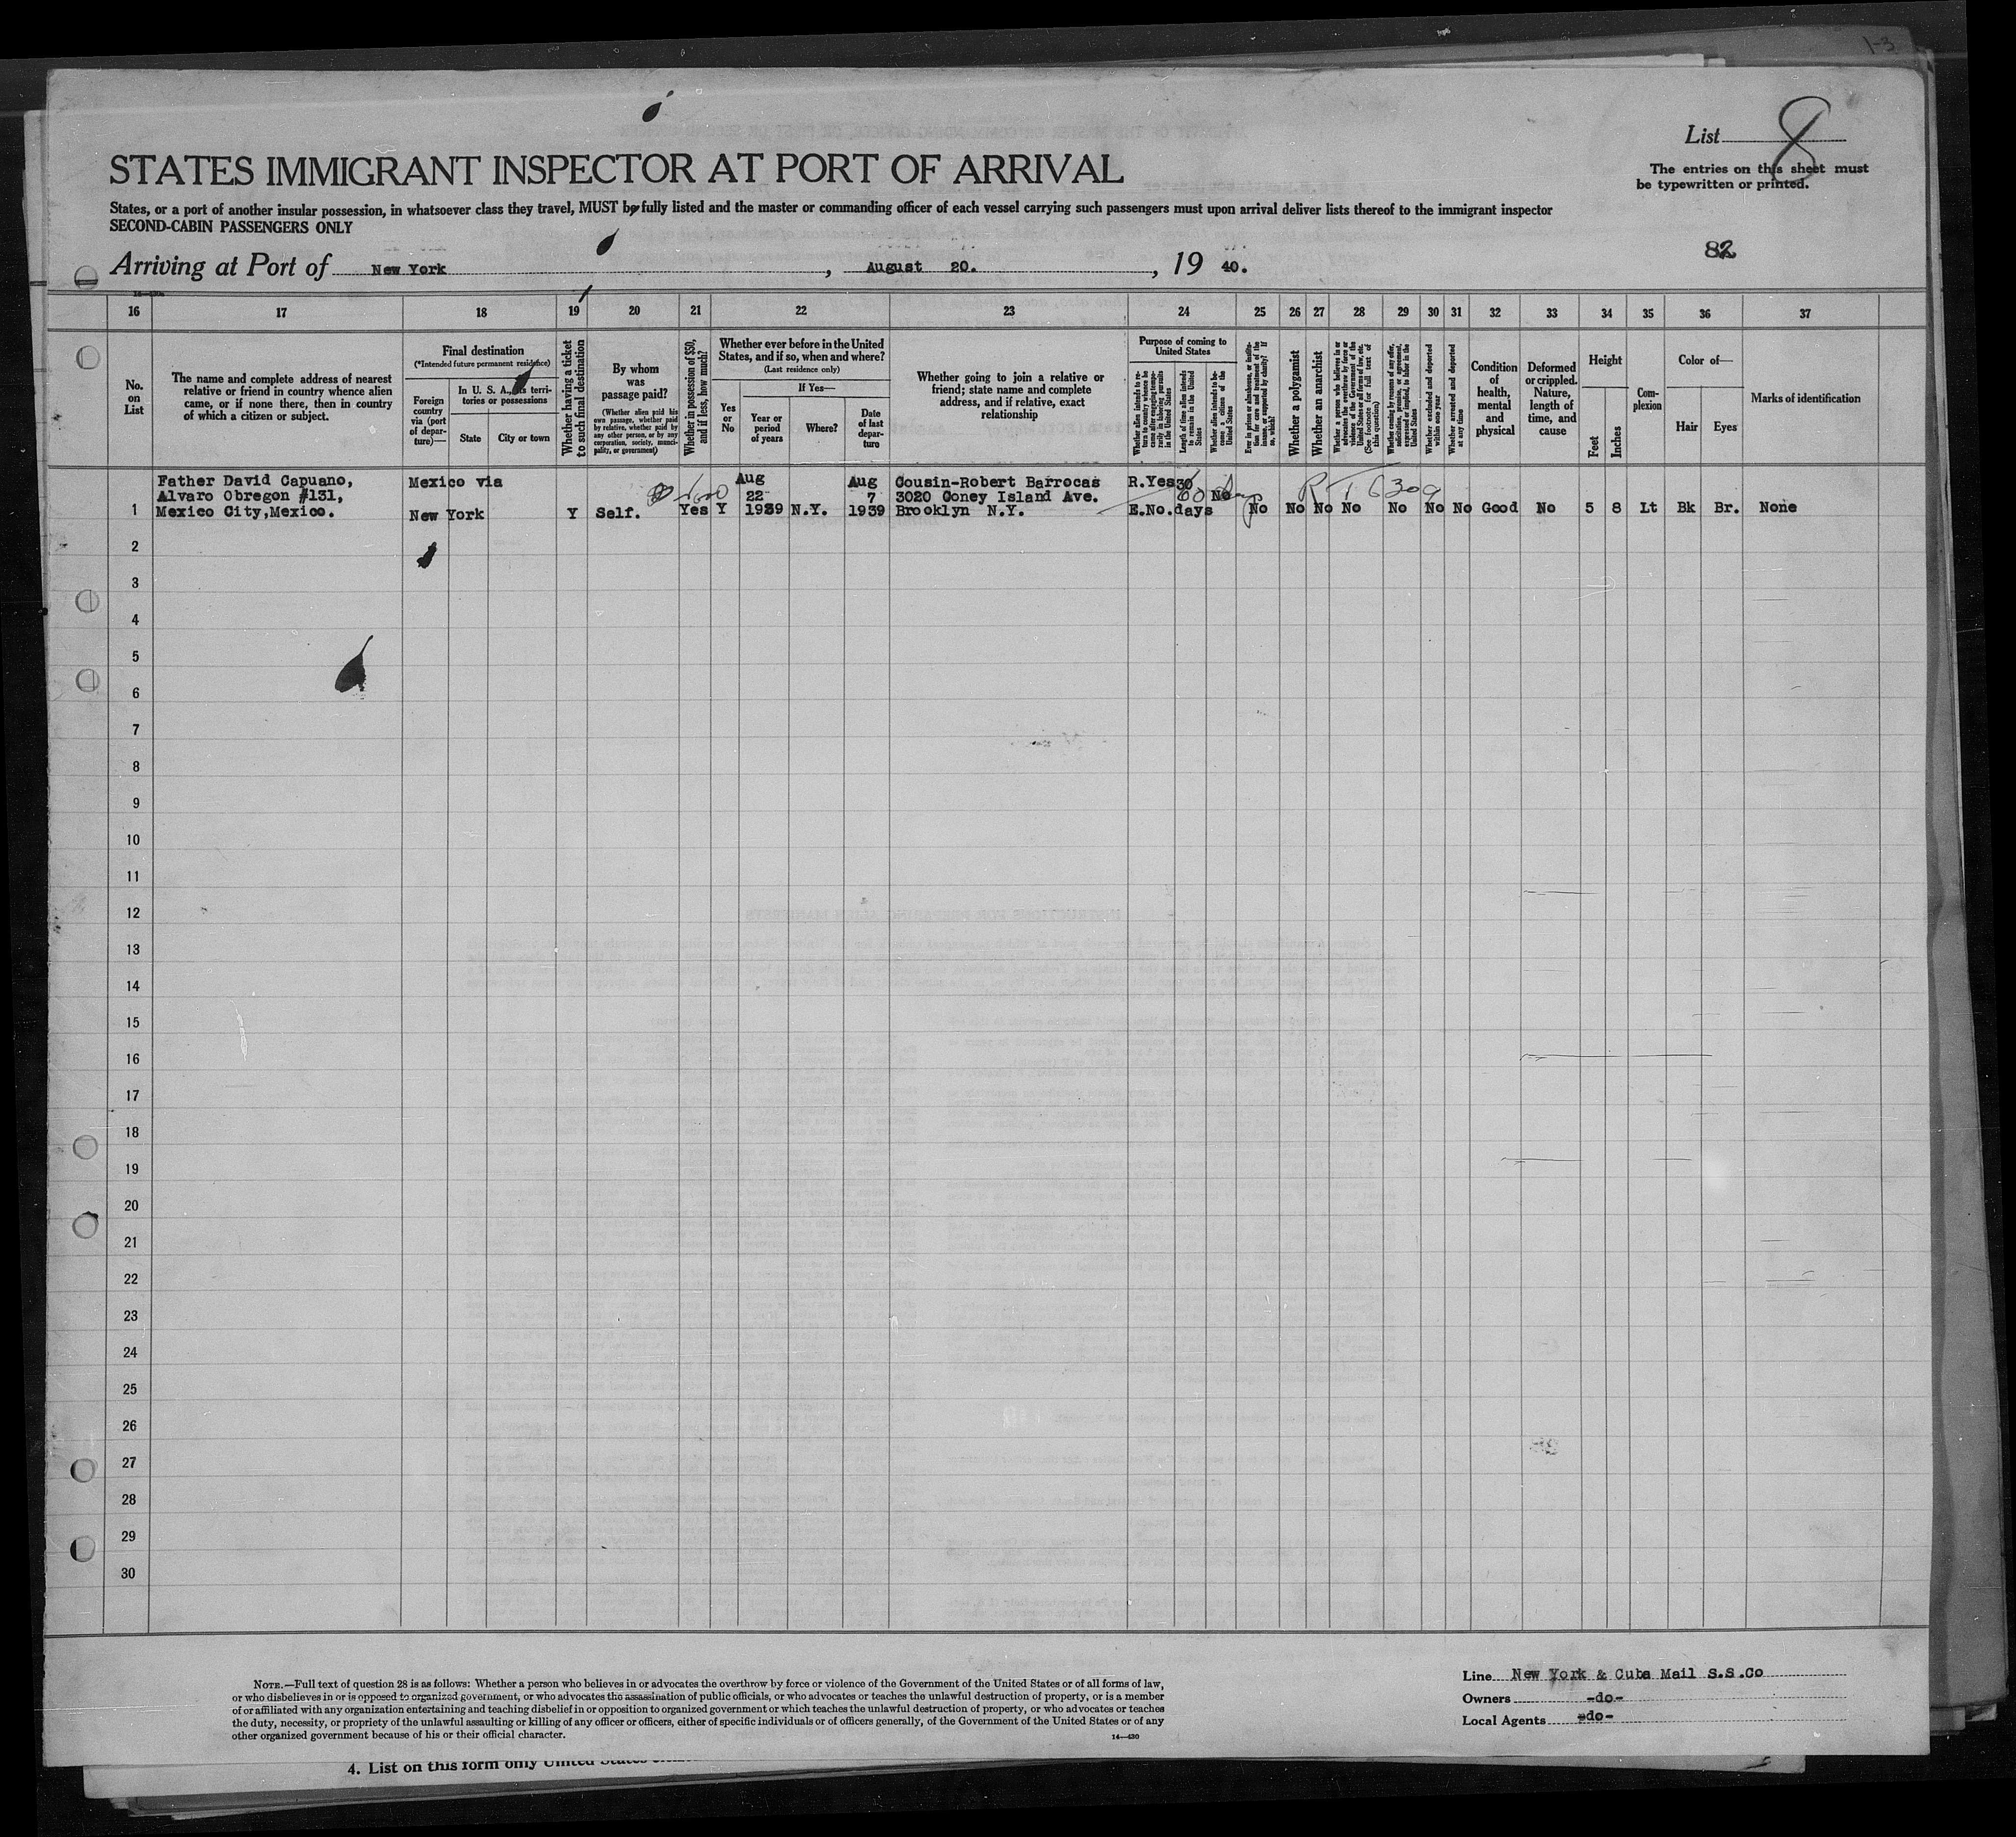 1-3
List 8
The entries on this sheet must
be typewritten or printed.
STATES IMMIGRANT INSPECTOR AT PORT OF ARRIVAL
States, or a port of another insular possession, in whatsoever class they travel, MUST be fully listed and the master or commanding officer of each vessel carrying such passengers must upon arrival deliver lists thereof to the immigrant inspector
SECOND-CABIN PASSENGERS ONLY
82
Arriving at Port of New York, August 20., 19 40.
16 17 18 19 20 21 22 23 24 25 26 27 28 29 30 31 32 33 34 35 36 37
No.
on
List
The name and complete address of nearest
relative or friend in country whence alien
came, or if none there, then in country
of which a citizen or subject.
Final destination
(*Intended future permanent residence)
Foreign
country
via (port
of depar-
ture)—
In U. S. A., its terri-
tories or possessions
State
City or town
Whether having a ticket
to such final destination
By whom
was
passage paid?
(Whether alien paid his
own passage, whether paid
by relative, whether paid by
any other person, or by any
corporation, society, munici-
pality, or government)
Whether in possession of $50,
and if less, how much?
Whether ever before in the United
States, and if so, when and where?
(Last residence only)
Yes
or
No
If Yes—
Year or
period
of years
Where?
Date
of last
depar-
ture
Whether going to join a relative or
friend; state name and complete
address, and if relative, exact
relationship
Purpose of coming to
United States
Whether alien intends to re-
turn to country whence he
came after engaging tempo-
rarily in laboring pursuits
in the United States
Length of time alien intends
to remain in the United
States
Whether alien intends to be-
come a citizen of the
United States
Ever in prison or almshouse, or institu-
tion for care and treatment of the
insane, or supported by charity? If
so, which?
Whether a polygamist
Whether an anarchist
Whether a person who believes in or
advocates the overthrow by force or
violence of the Government of the
United States or all forms of law, etc.
(See footnote for full text of
this question)
Whether coming by reason of any offer,
solicitation, promise, or agreement,
expressed or implied, to labor in the
United States
Whether excluded and deported
within one year
Whether arrested and deported
at any time
Condition
of
health,
mental
and
physical
Deformed
or crippled.
Nature,
length of
time, and
cause
Height
Feet
Inches
Com-
plexion
Color of—
Hair
Eyes
Marks of identification
Father David Capuano, Mexico via Aug Aug Cousin-Robert Barrocas R.Yes 30
Alvaro Obregon #131, 22 7 3020 Coney Island Ave. 60 days No
1 Mexico City, Mexico. New York Y Self. Yes Y 1939 N.Y. 1939 Brooklyn N.Y. E.No. days No No No No No No No Good No 5 8 Lt Bk Br. None
2
3
4
5
6
7
8
9
10
11
12
13
14
15
16
17
18
19
20
21
22
23
24
25
26
27
28
29
30
NOTE.—Full text of question 28 is as follows: Whether a person who believes in or advocates the overthrow by force or violence of the Government of the United States or of all forms of law,
or who disbelieves in or is opposed to organized government, or who advocates the assassination of public officials, or who advocates or teaches the unlawful destruction of property, or is a member
of or affiliated with any organization entertaining and teaching disbelief in or opposition to organized government or which teaches the unlawful destruction of property, or who advocates or teaches
the duty, necessity, or propriety of the unlawful assaulting or killing of any officer or officers, either of specific individuals or of officers generally, of the Government of the United States or of any
other organized government because of his or their official character.
14—430
Line New York & Cuba Mail S.S.Co
Owners -do-
Local Agents -do-
4. List on this form only United States